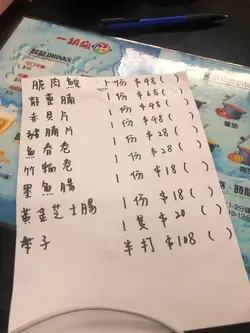 DRINKS
脆肉鯇 1份 $48 ( )
龍躉腩 1份 $68 ( )
赤貝片 1份 $48 ( )
豬腩片 1份 $28 ( )
魚春卷 1份 $28 ( )
竹輪卷 1份 $18 ( )
墨魚腸 1份 $18 ( )
黃金芝士腸 1隻 $20 ( )
子 半打 $108 ( )